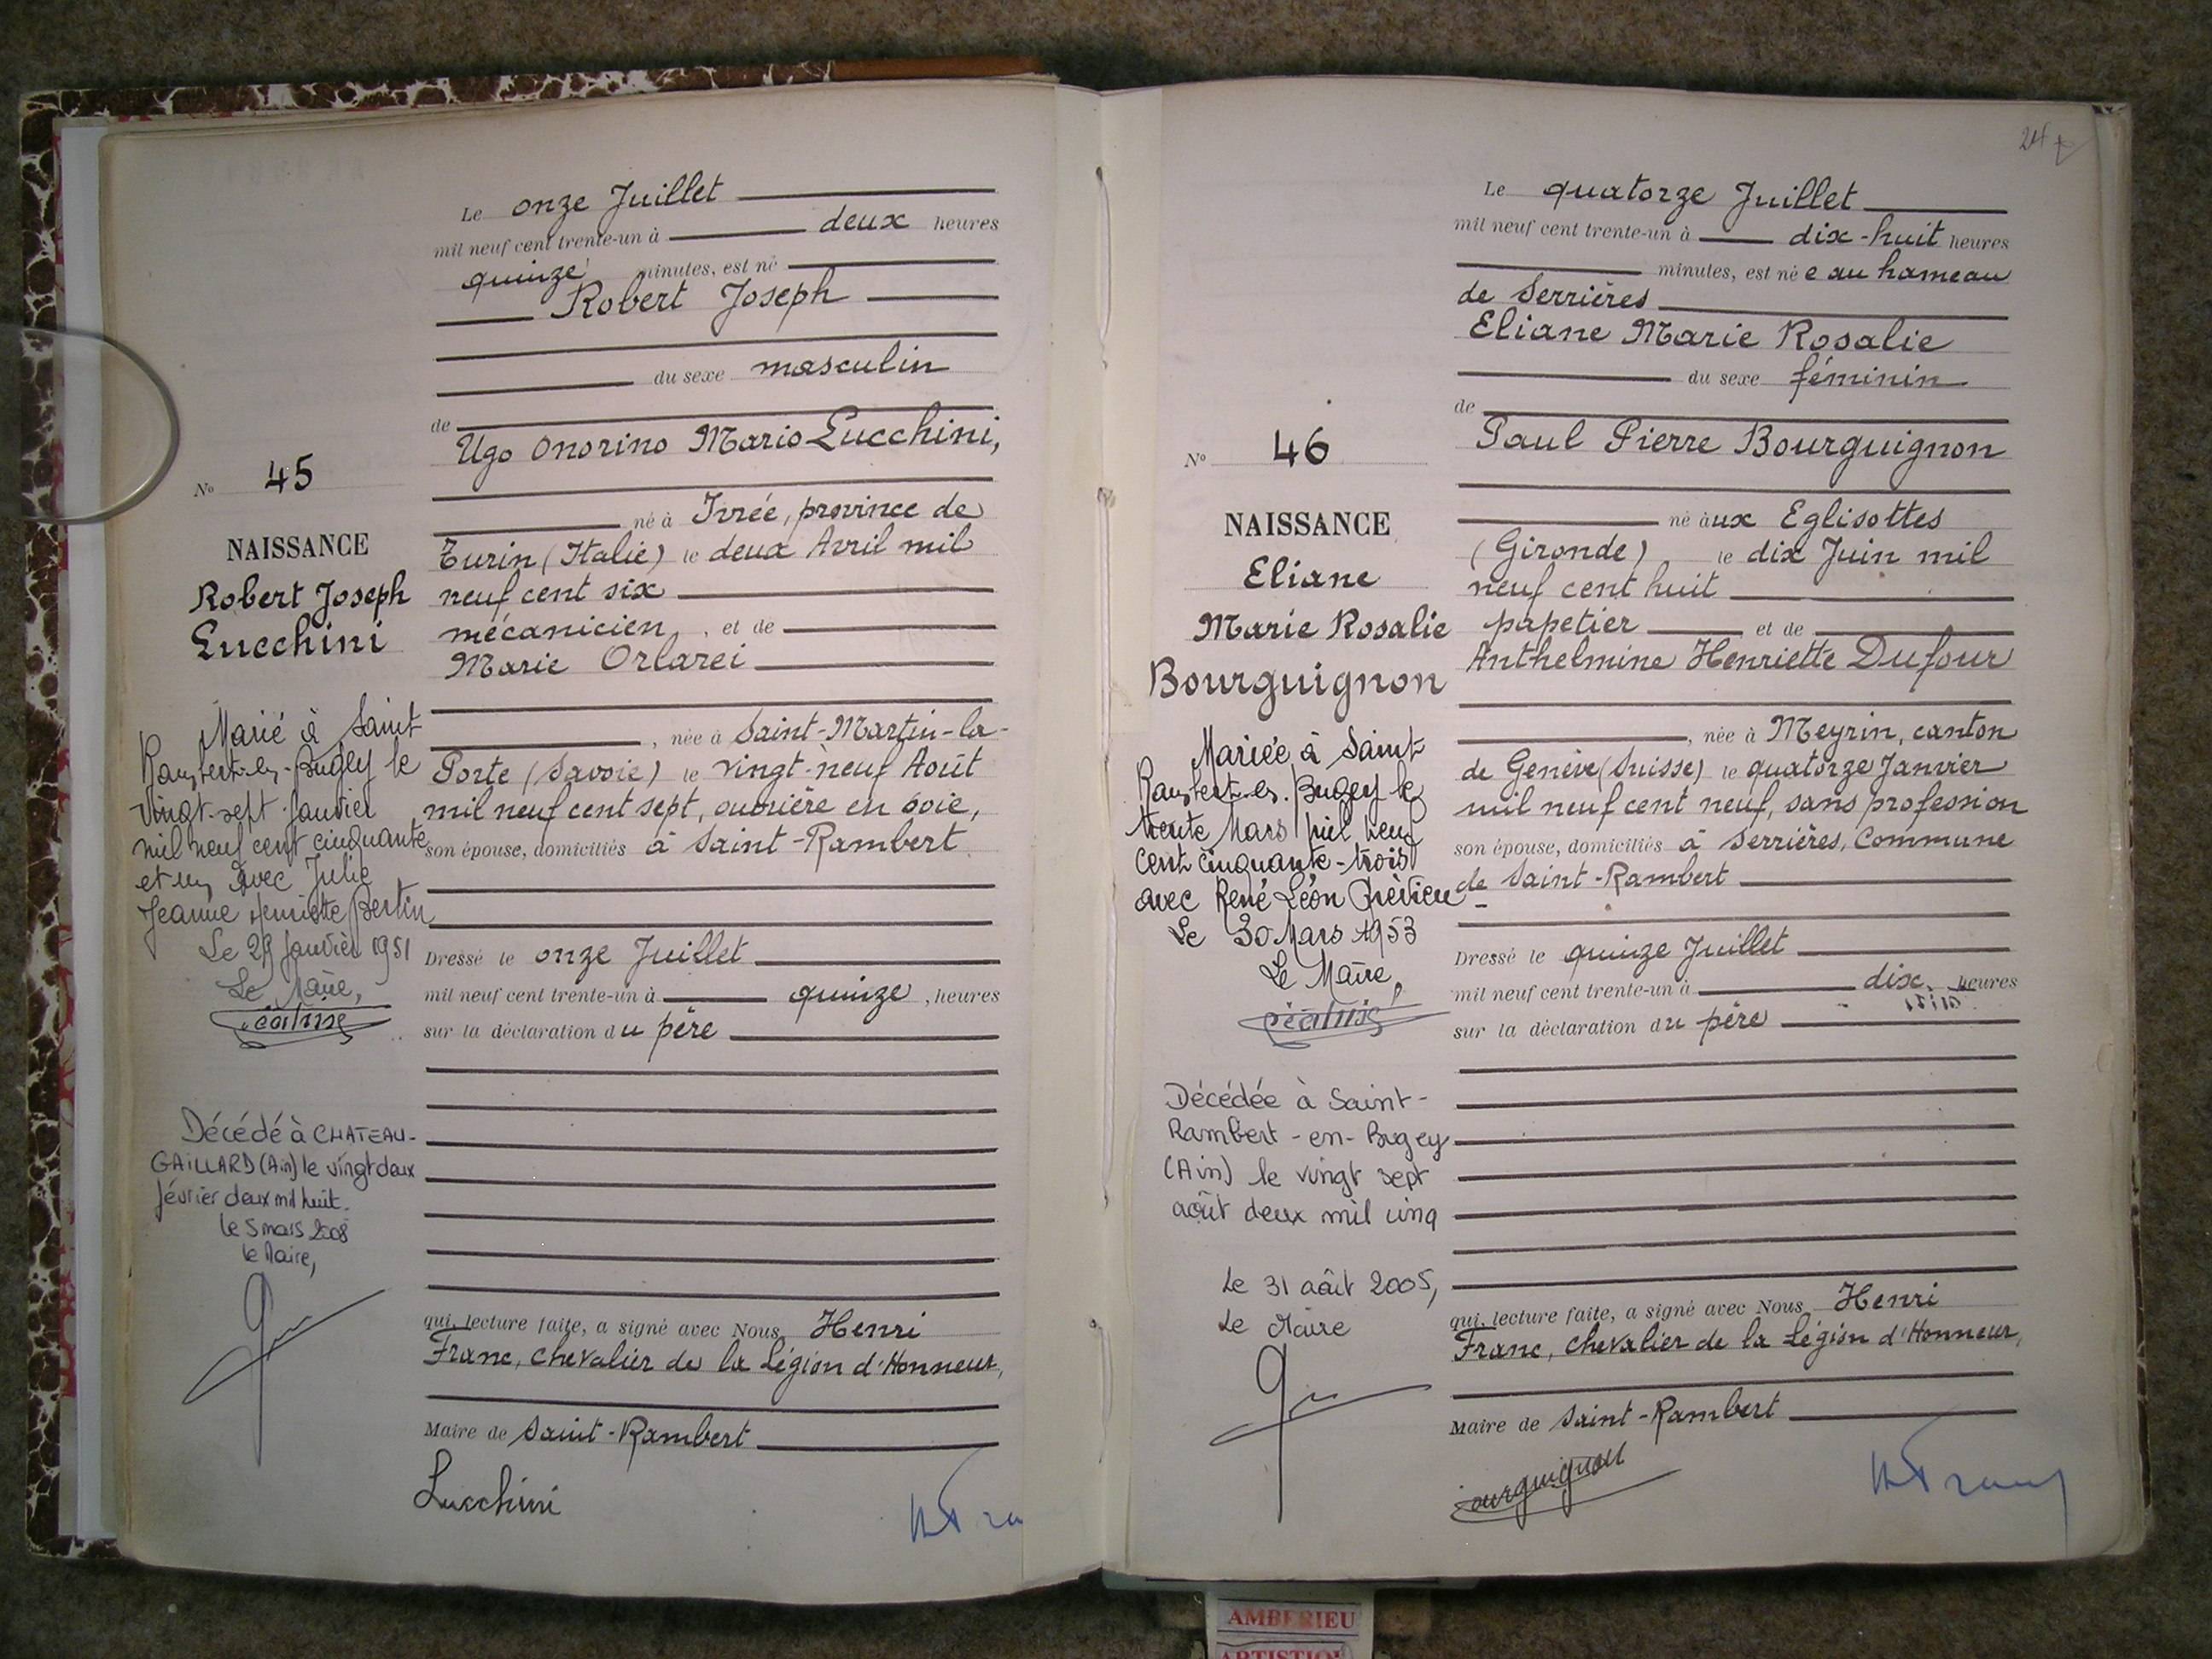 Le onze Juillet
mil neuf cent trente-un à deux heures
quinze minutes, est né
Robert Joseph
du sexe masculin
de
Ugo Onorino Mario Lucchini,
né à Ivrée, province de
Turin (Italie) le deux Avril mil
neuf cent six
mécanicien, et de
Marie Orlarei
, née à Saint-Martin-la-
Porte (Savoie) le vingt-neuf Août
mil neuf cent sept, ouvrière en soie,
son épouse, domiciliés à Saint-Rambert
Dressé le onze Juillet
mil neuf cent trente-un à quinze, heures
sur la déclaration du père
qui, lecture faite, a signé avec Nous, Henri
Franc, chevalier de la Légion d'Honneur,
Maire de Saint-Rambert
Lucchini
No 45
NAISSANCE
Robert Joseph
Lucchini
Marié à Saint
Rambert-en-Bugey le
vingt-sept Janvier
mil neuf cent cinquante
et un avec Julie
Jeanne Henriette Bertin
Le 29 Janvier 1951
Le Maire,
Décédé à CHATEAU-
GAILLARD (Ain) le vingt deux
février deux mil huit.
le 5 mars 2008
le Maire,
Le quatorze Juillet
mil neuf cent trente-un à dix-huit heures
minutes, est née au hameau
de Serrières
Eliane Marie Rosalie
du sexe féminin
de
Paul Pierre Bourguignon
né àux Eglisottes
(Gironde) le dix Juin mil
neuf cent huit
papetier et de
Anthelmine Henriette Dufour
, née à Meyrin, canton
de Genève (Suisse) le quatorze Janvier
mil neuf cent neuf, sans profession
son épouse, domiciliés à Serrières, Commune
de Saint-Rambert
Dressé le quinze Juillet
mil neuf cent trente-un à dix, heures
sur la déclaration du père
qui, lecture faite, a signé avec Nous, Henri
Franc, chevalier de la Légion d'Honneur,
Maire de Saint-Rambert
No 46
NAISSANCE
Eliane
Marie Rosalie
Bourguignon
Mariée à Saint
Rambert-en-Bugey le
trente Mars mil neuf
cent cinquante-trois
avec René Léon
Le 30 Mars 1953
Le Maire,
Décédée à Saint-
Rambert-en-Bugey
(Ain) le vingt sept
août deux mil cinq
Le 31 août 2005,
Le Maire
AMBERIEU